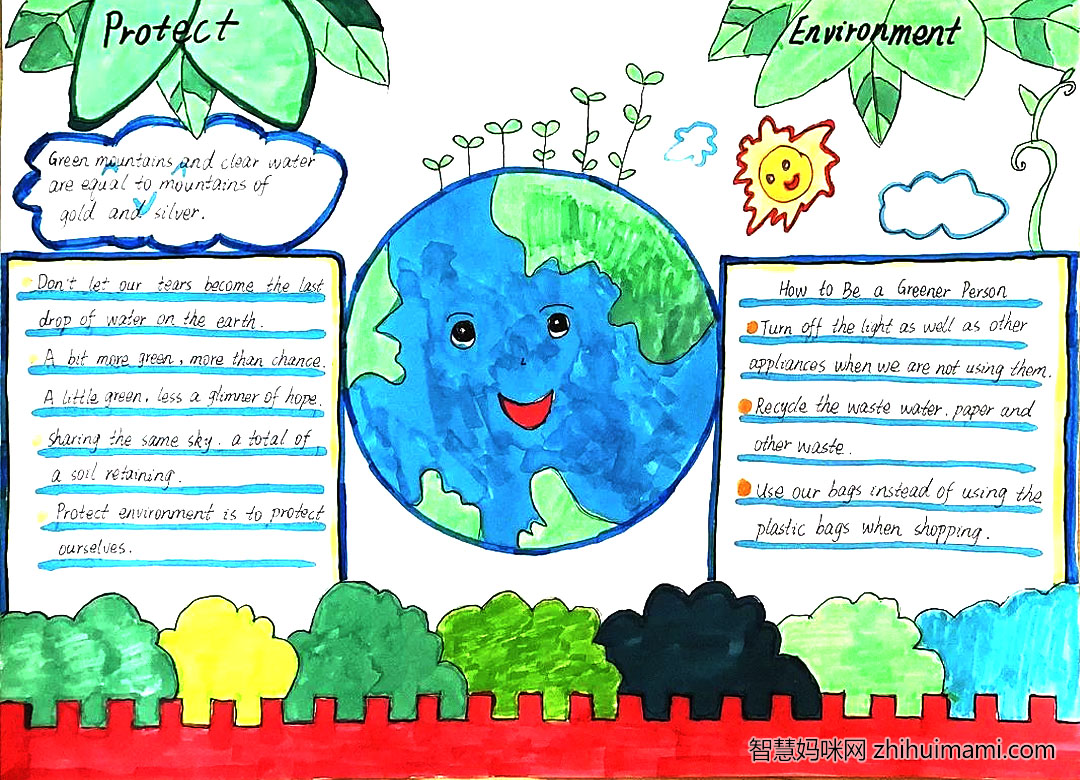 Protect
Environment
Green mountains and clear water
are equal to mountains of
gold and silver.
Don't let our tears become the last
drop of water on the earth.
A bit more green, more than chance.
A little green, less a glimner of hope.
sharing the same sky, a total of
a soil retaining.
Protect environment is to protect
ourselves.
How to Be a Greener Person
Turn off the light as well as other
appliances when we are not using them.
Recycle the waste water, paper and
other waste.
Use our bags instead of using the
plastic bags when shopping.
智慧妈咪网 zhihuimami.com